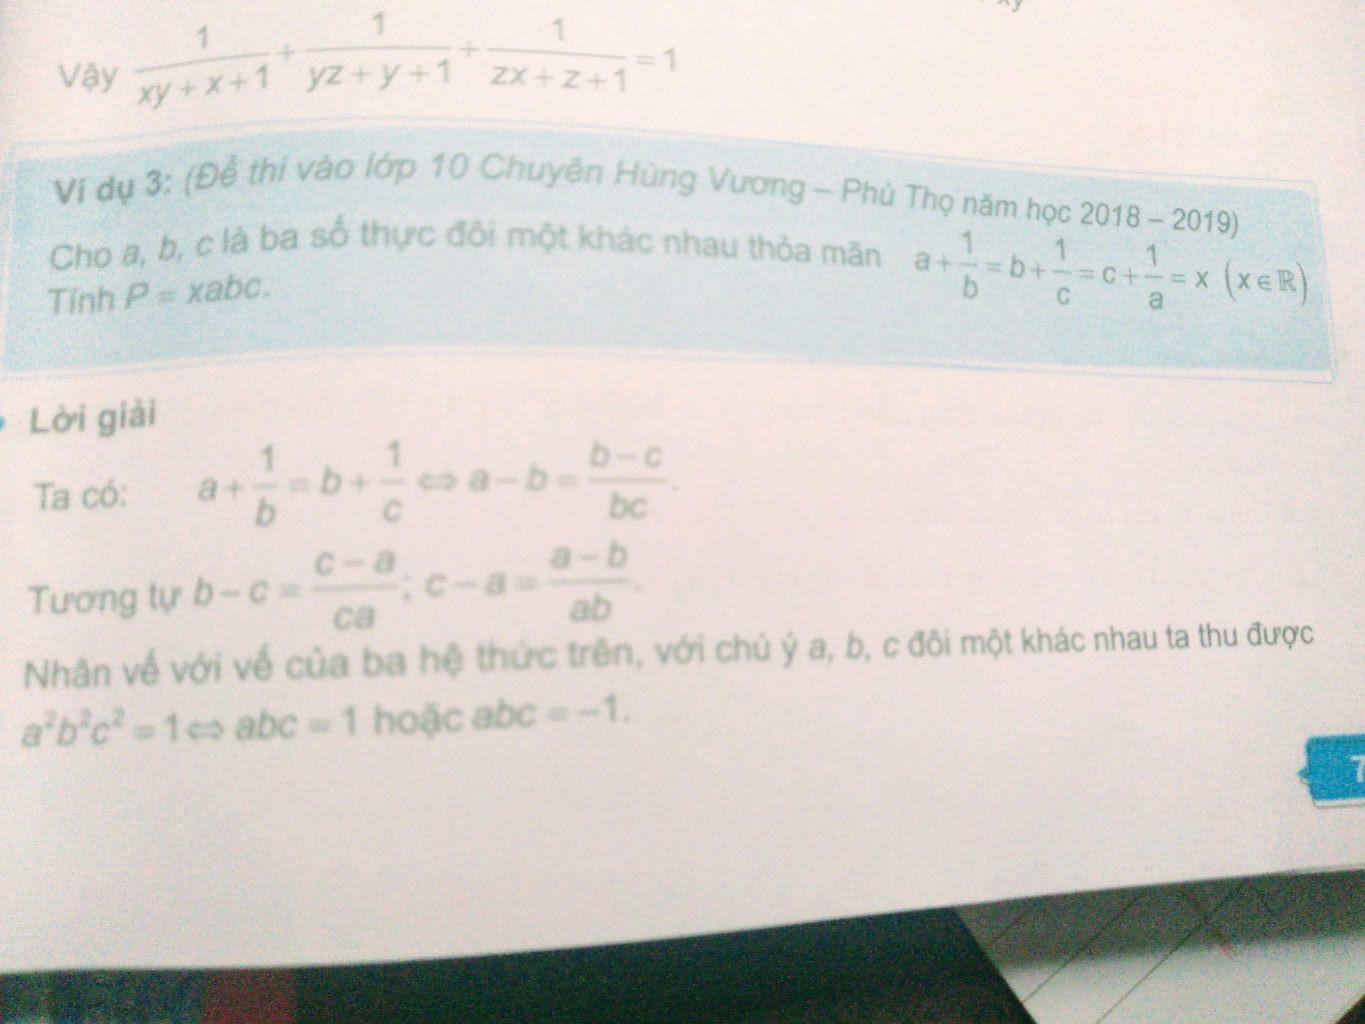 xy
Vậy 1/(xy + x + 1) + 1/(yz + y + 1) + 1/(zx + z + 1) = 1
Ví dụ 3: (Đề thi vào lớp 10 Chuyên Hùng Vương – Phú Thọ năm học 2018 – 2019)
Cho a, b, c là ba số thực đôi một khác nhau thỏa mãn a + 1/b = b + 1/c = c + 1/a = x (x ∈ ℝ)
Tính P = xabc.
Lời giải
Ta có: a + 1/b = b + 1/c ⇔ a – b = (b – c)/bc.
Tương tự b – c = (c – a)/ca; c – a = (a – b)/ab.
Nhân vế với vế của ba hệ thức trên, với chú ý a, b, c đôi một khác nhau ta thu được
a²b²c² = 1 ⇔ abc = 1 hoặc abc = –1.
7